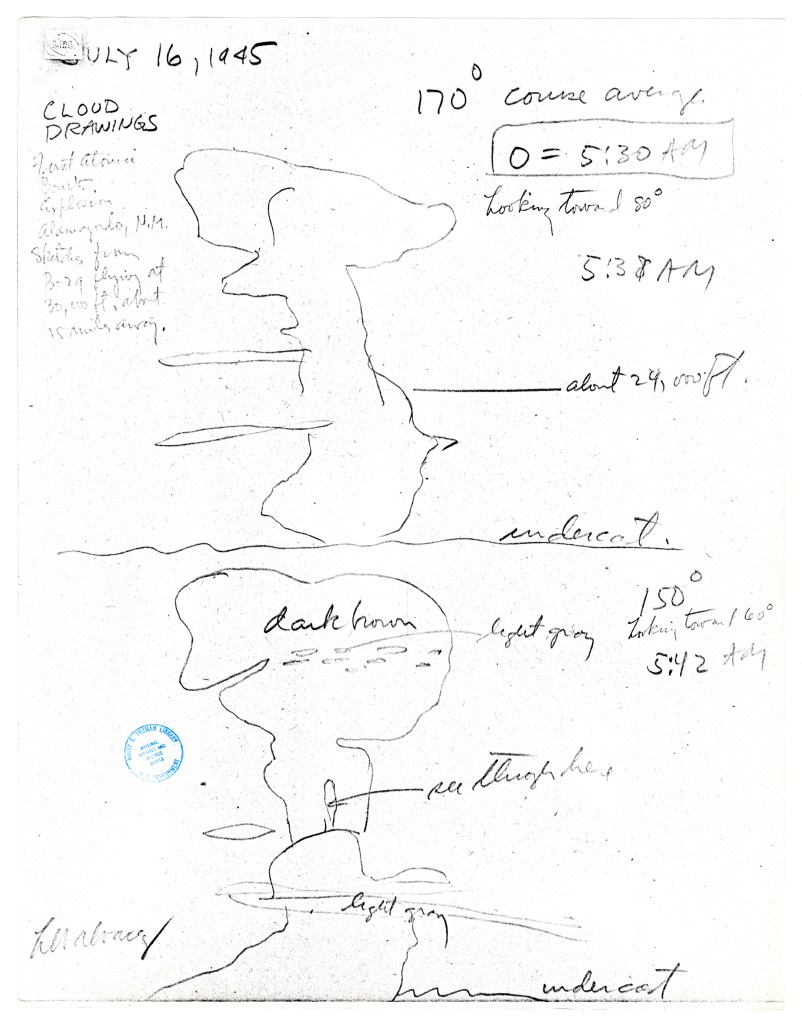 JULY 16, 1945
CLOUD
DRAWINGS
First Atomic
Bomb
Explosion
Alamogordo, N.M.
Sketches from
B-29 flying at
30,000 ft, about
15 miles away.
170° course average.
0 = 5:30 AM
Looking toward 80°
5:38 AM
about 24,000 ft.
undercast.
dark brown
light gray
150°
Looking toward 60°
5:42 AM
HARRY S. TRUMAN LIBRARY
NATIONAL
ARCHIVES AND
RECORDS
SERVICE
U.S. GOVERNMENT
see through here
light gray
undercast